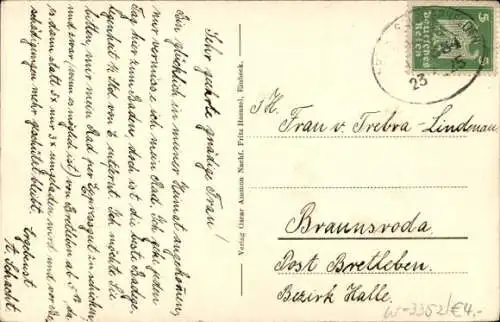 Sehr geehrte gnädige Frau!
Bin glücklich in meiner Heimat angekommen,
nur vermisse ich mein Rad. Ich gehe jeden
Tag hier zum Baden, doch ist die beste Badege-
legenheit ¾ Std von entfernt. Ich möchte Sie
bitten, mir mein Rad per Expressgut zu schicken,
und zwar (wenn es möglich ist) von Bretleben ab
dann statt 5x nur 3x umgeladen wird und vor Be-
schädigungen mehr geschützt bleibt.
Ergebenst
H. Schacht
Verlag Oscar Ammon Nachf. Fritz Hummel, Einbeck.
Deutsches Reich
5 5
23
I.H.
Frau v. Trebra-Lindenau
Braunsroda
Post Bretleben.
Bezirk Halle.
W-3352/€4,-